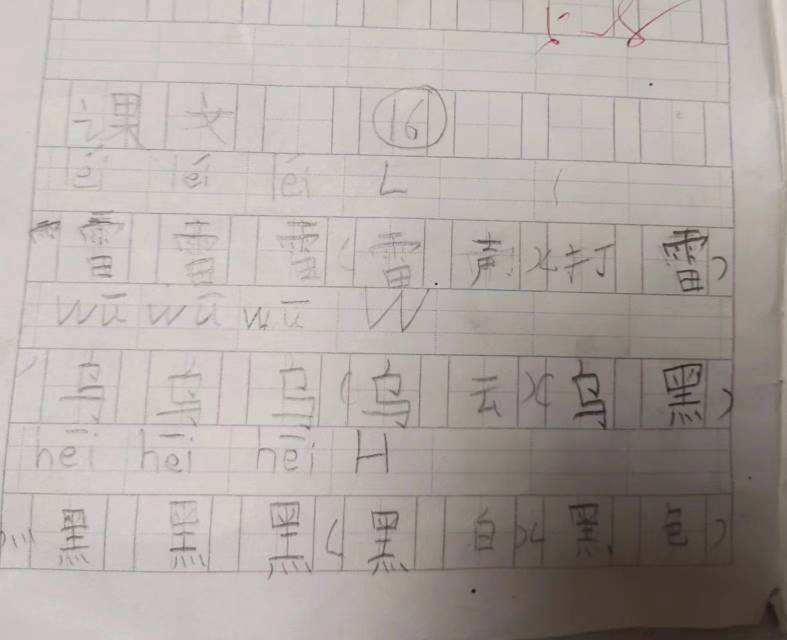 课文 16
léi léi léi L
雷 雷 雷 (雷声)(打雷)
wū wū wū W
乌 乌 乌 (乌云)(乌黑)
hēi hēi hēi H
黑 黑 黑 (黑白)(黑色)